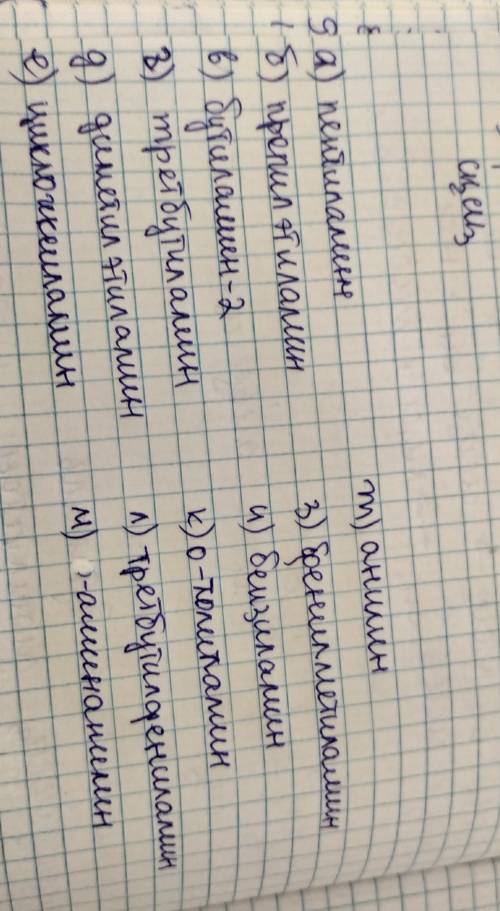 а) пентиламин
б) пропил этиламин
в) бутиламин-2
г) третбутиламин
д) диметил этиламин
е) циклогексиламин
т) анилин
з) фенилметиламин
и) бензиламин
к) о-толиламин
л) третбутилфениламин
м) -аминоанилин